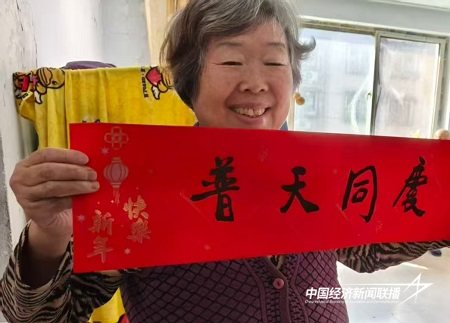 普天同慶
快樂
新年
中国经济新闻联播